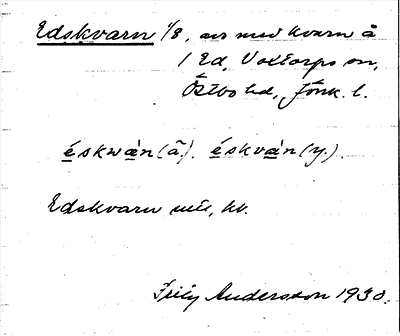 Edskvarn 1/8, avs med kvarn å
1 Ed, Voxtorps sn,
Östbo hd, Jönk. l.
éskwà̱n (ä). éskvà̱n (y.).
Edskvarn mtl, kb.
Frilj Andersson 1930.